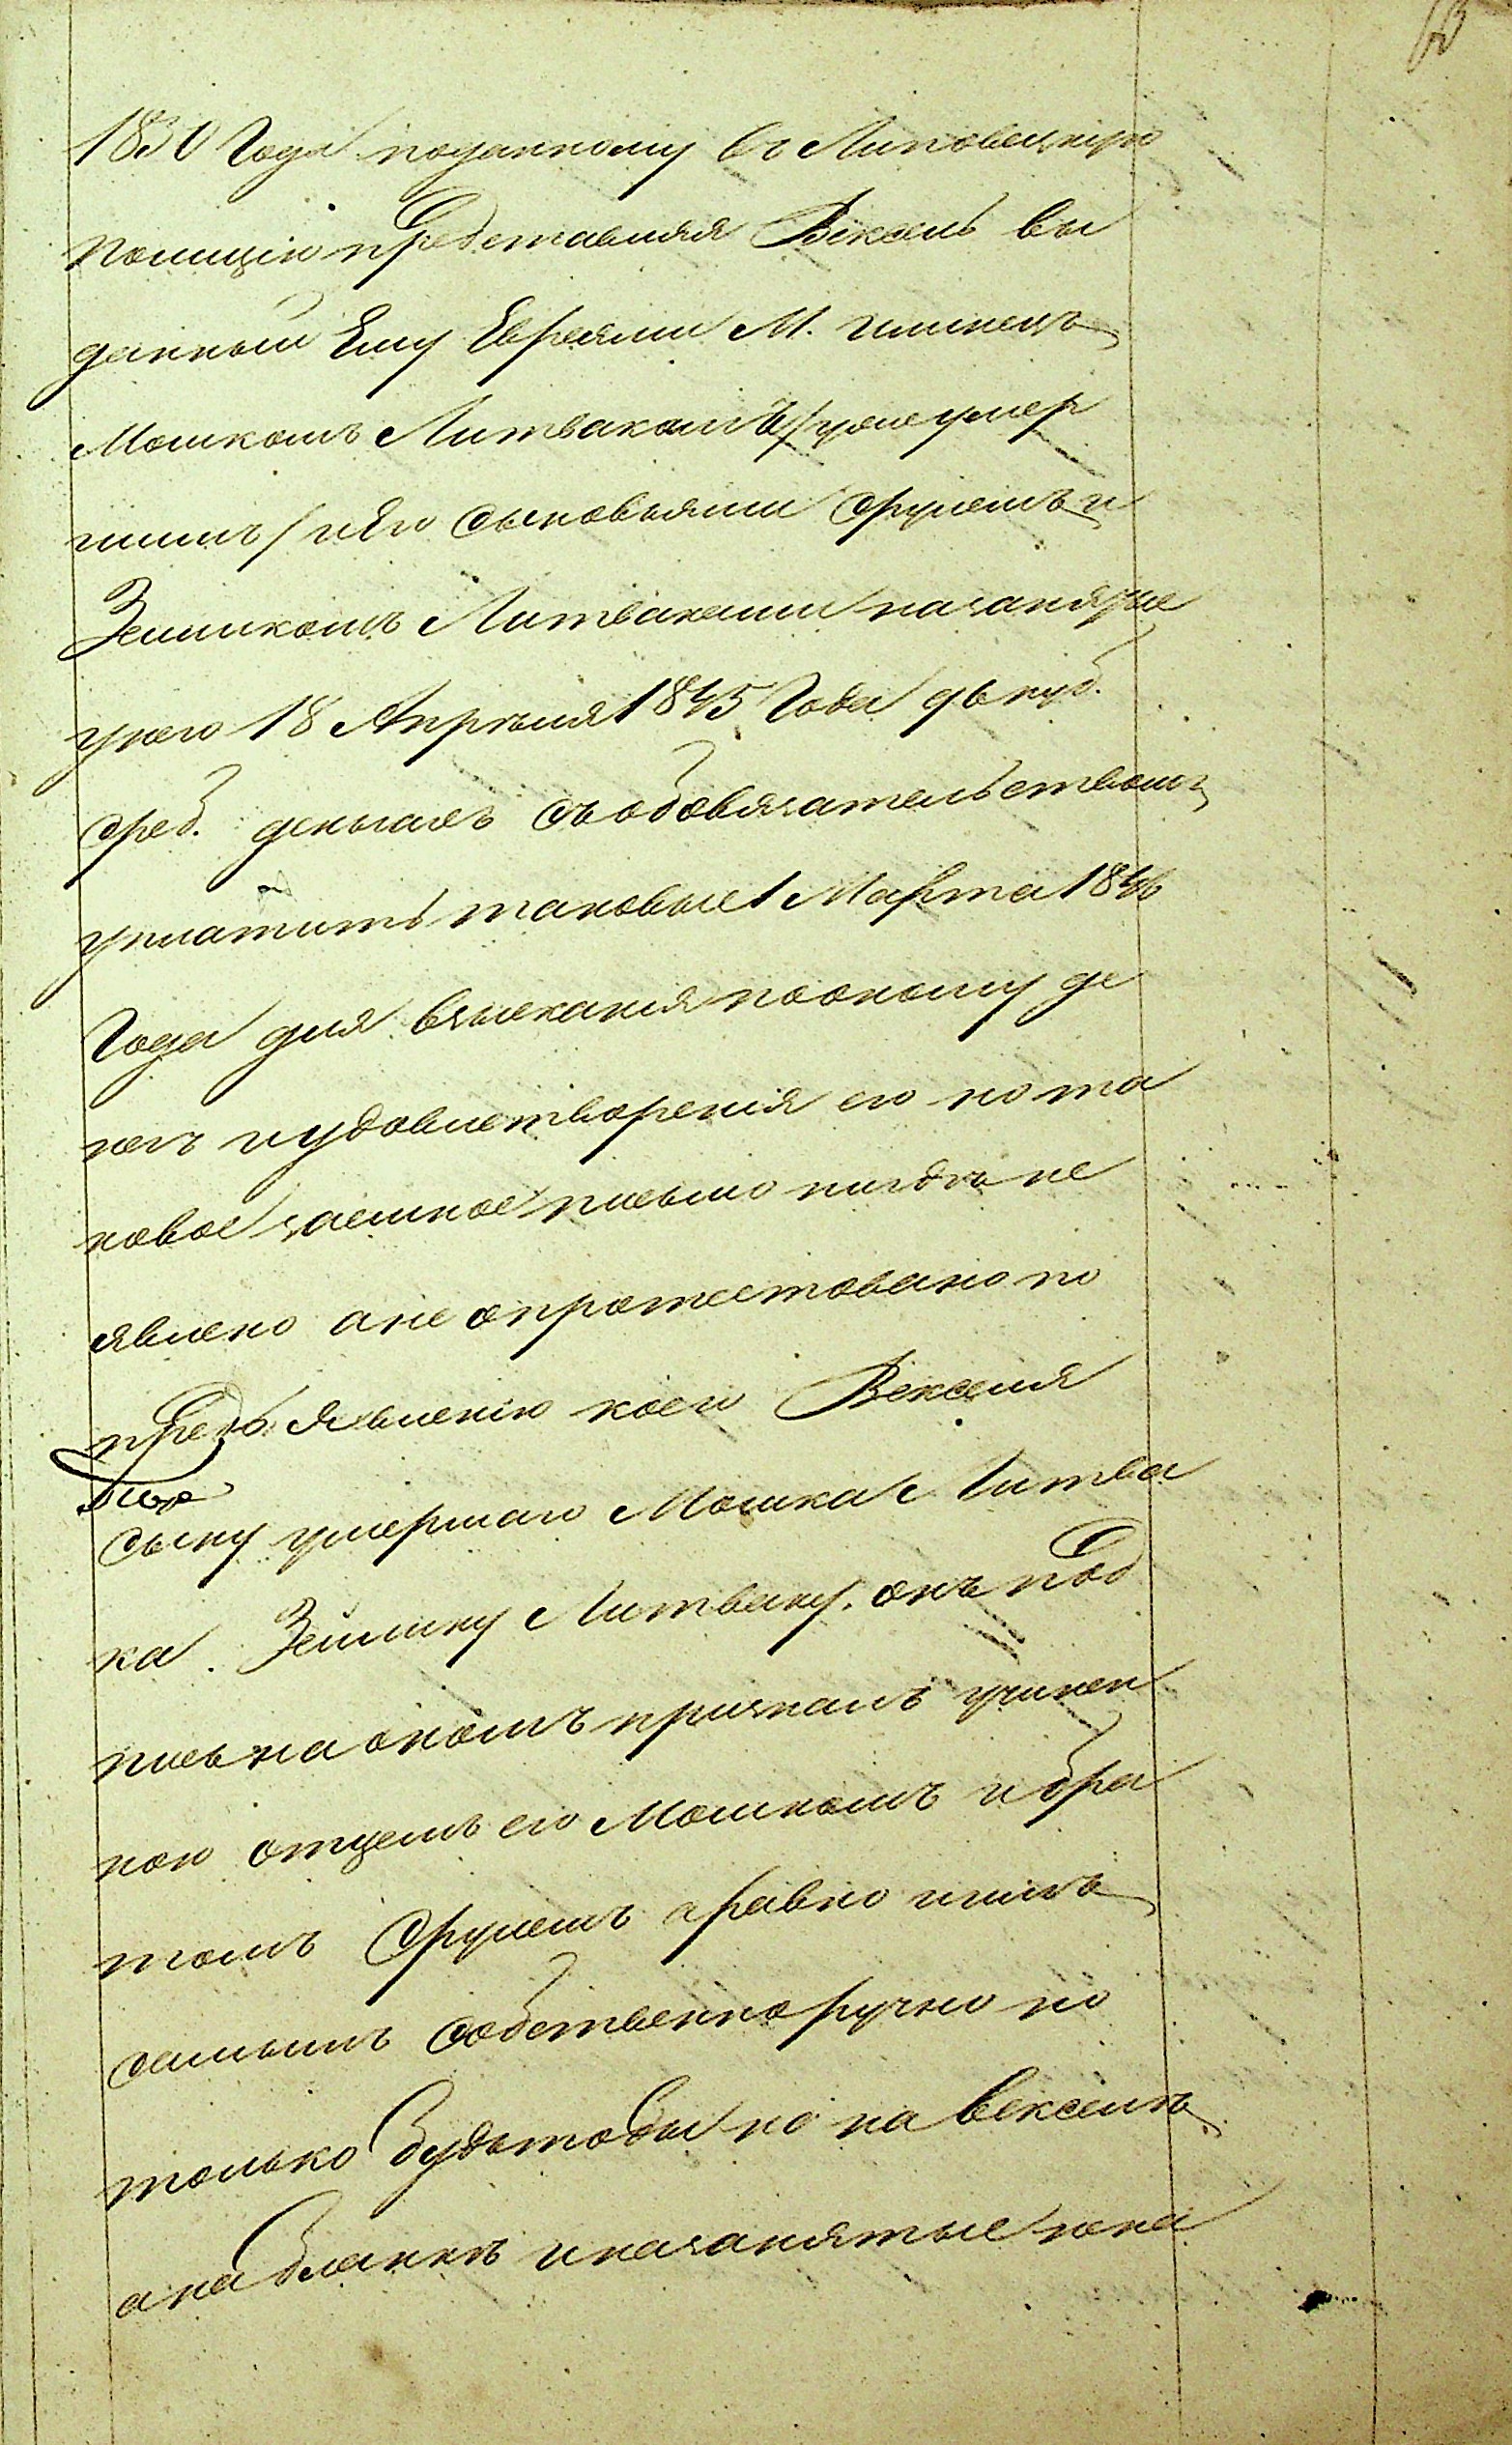 1850 Года поданному въ Липовецкую
Полицію представляя Вексель вы
данный Ему Евреями М. Илинецъ
Мошкомъ Литвакомъ /уже умер
шимъ/ и Его сыновьями Срулемъ и
Зейликомъ Литваками на занятые
у него 18 Апрѣля 1845 Года руб.
сереб. денегъ съ обовязательствомъ
уплатить таковые 1 Марта 1846
Года для взысканія по оному де
негъ и удовлетворенія его но та
ковое заемное письмо нигдѣ не
явлено а не опротестовано по
предъявленію коего Векселя
сыну умершаго Мошка Литва
ка Зейлику Литваку. онъ под
пись на ономъ призналъ учинен
ною отцемъ его Мошкомъ и бра
томъ Срулемъ а равно и имъ
самымъ собственноручно но
только будьтобы но на векселѣ
а на бланкѣ и на занятые не на